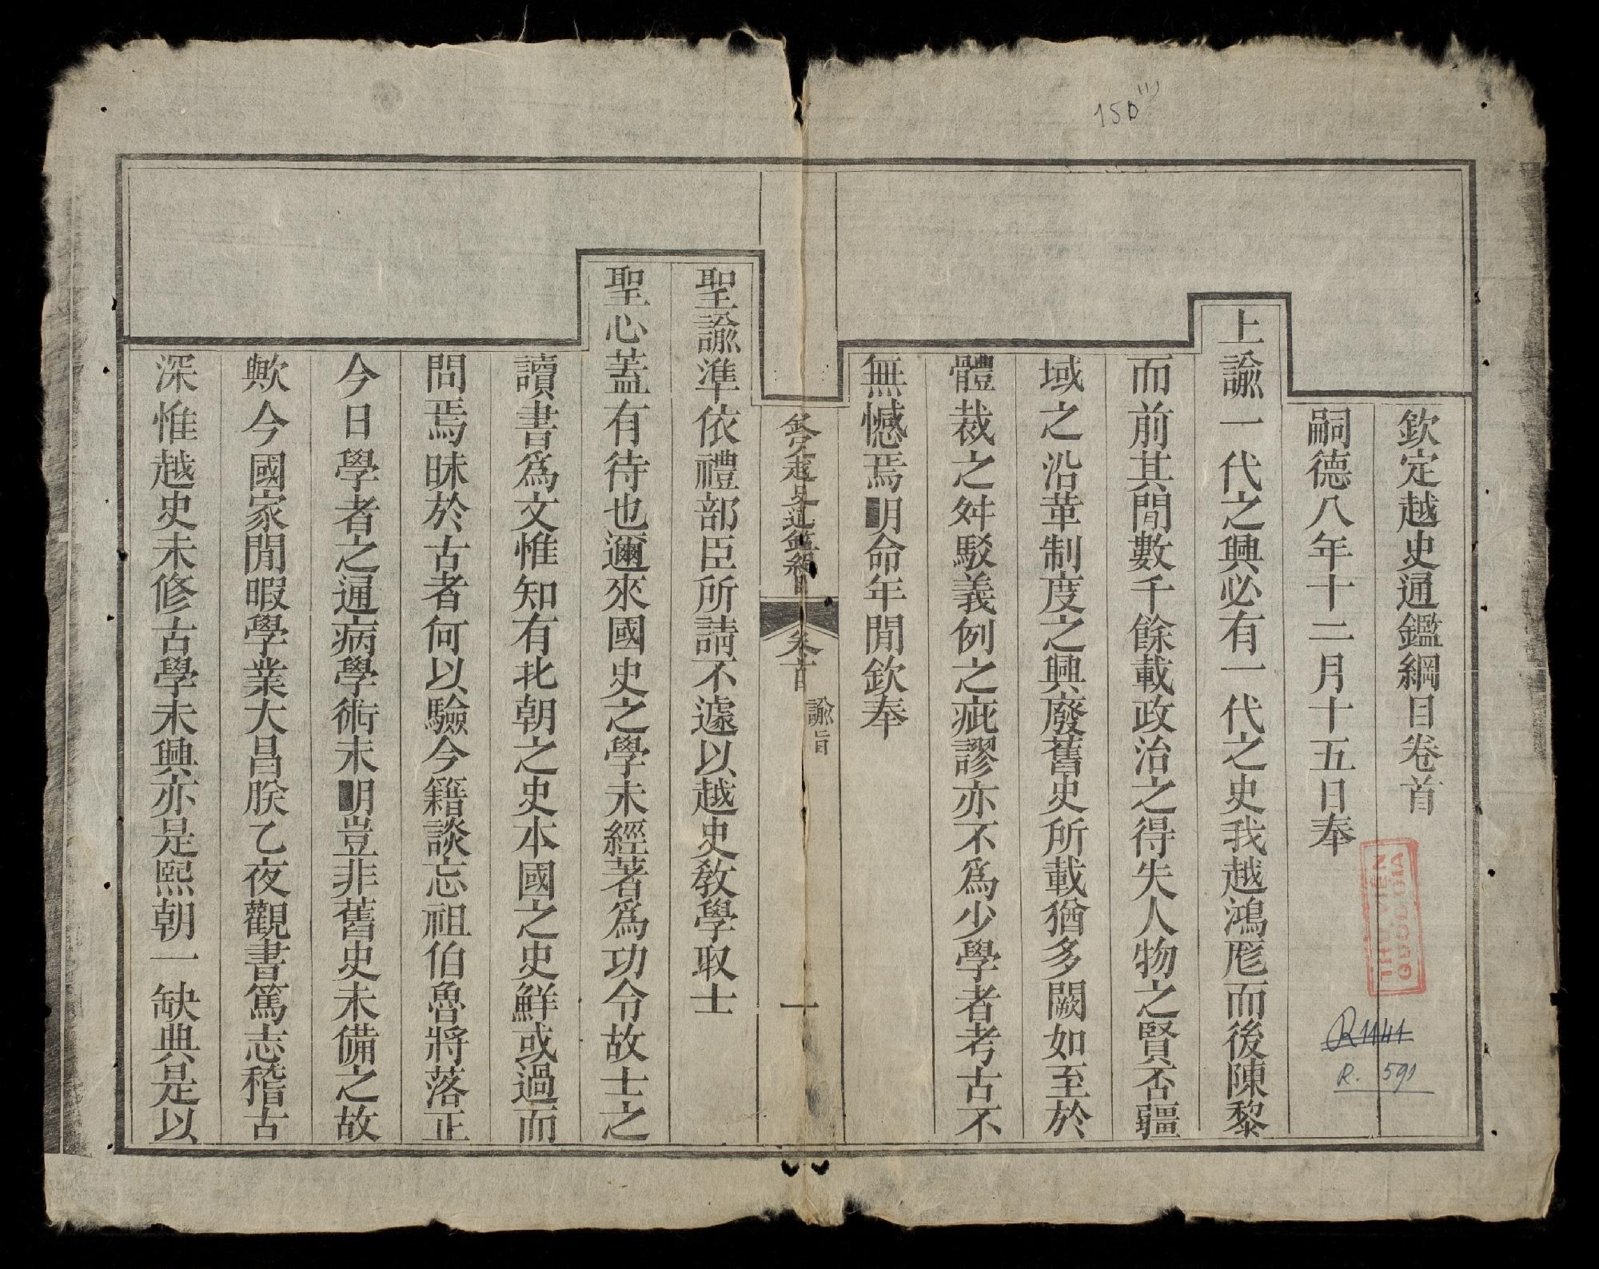 欽定越史通鑑綱目卷首
嗣德八年十二月十五日奉
上諭一代之興必有一代之史我越鴻厖而後陳黎
而前其間數千餘載政治之得失人物之賢否疆
域之沿革制度之興廢舊史所載猶多闕如至於
體裁之舛駁義例之疵謬亦不為少學者考古不
無憾焉明命年間欽奉
欽定越史通鑑綱目 卷首 諭旨 一
聖諭準依禮部臣所請不遽以越史教學取士
聖心蓋有待也邇來國史之學未經著爲功令故士之
讀書爲文惟知有北朝之史本國之史鮮或過而
問焉昧於古者何以驗今籍談忘祖伯魯將落正
今日學者之通病學術未明豈非舊史未備之故
歟今國家閒暇學業大昌朕乙夜觀書篤志稽古
深惟越史未修古學未興亦是熙朝一缺典是以
150
R 1141
R. 591
THU VIEN